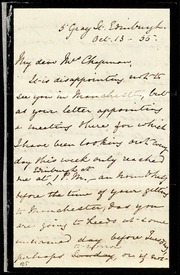 5 Gray St. Edinburgh.
Oct. 13 - 55.
My dear Mrs Chapman,
It is disappointing not to
see you in Manchester, but
as your letter appointing
a meeting there, for which
I have been looking out every
day this week only reached
Edinburgh at
me at 1 P.M., an hour only
before the time of your getting
to Manchester, & as you
are going to Leeds at some
day before Tuesday
perhaps Sunday, or if